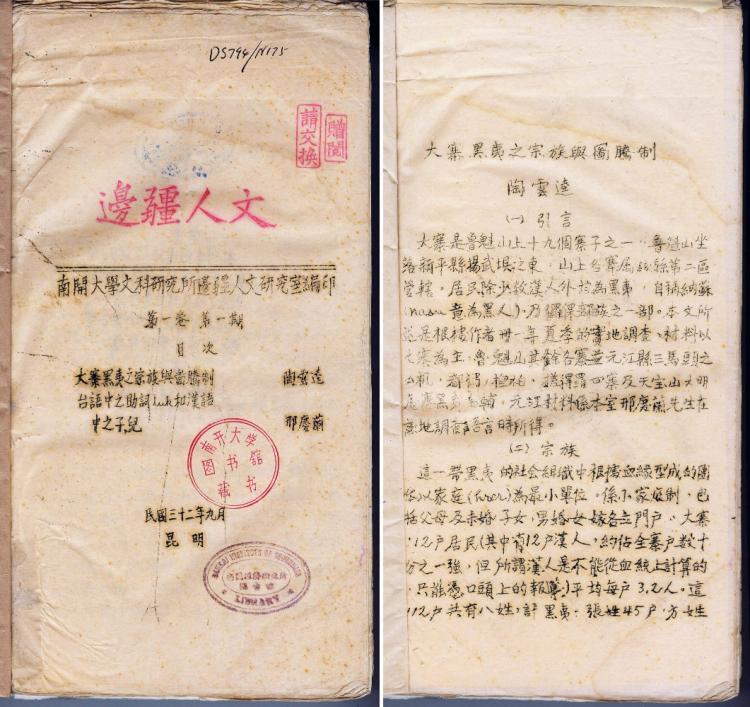 DS794/N175
請交換
贈閱
邊疆人文
南開大學文科研究所邊疆人文研究室編印
第一卷 第一期
目 次
大寨黑夷之宗族與圖騰制 陶雲逵
台語中之助詞luk和漢語
中之子,兒 邢慶蘭
南开大学
图书馆
藏书
民國三十二年九月
昆 明
LIBRARY
大寨黑夷之宗族與圖騰制
陶雲逵
(一) 引言
大寨是魯魁山上十九個寨子之一。魯魁山坐
落新平縣揚武壩之東,山上各寨屬該縣第二區
管轄,居民除少數漢人外均為黑夷,自稱納蘇
(nasu 意為黑人),乃猓玀部族之一部。本文所
述是根據作者卅一年夏季的實地調查。材料以
大寨為主,魯魁山其餘各寨並元江縣三馬頭之
四寨及
黑夷為輔,元江材料係本室邢慶蘭先生在
該地調查語言時所得。
(二) 宗族
這一帶黑夷的社會組織中根據血緣型成的團
体,以家庭
為最小單位,係小家庭制,包
括父母及未婚子女,男婚女嫁各立門戶。大寨
112戶居民(其中有12戶漢人,約佔全寨戶數十
分之一強,但所謂漢人是不能從血統上計算的
只能憑口頭上的報導)平均每戶3.2人。這
112戶共有八姓,計黑夷:張姓45戶,方姓